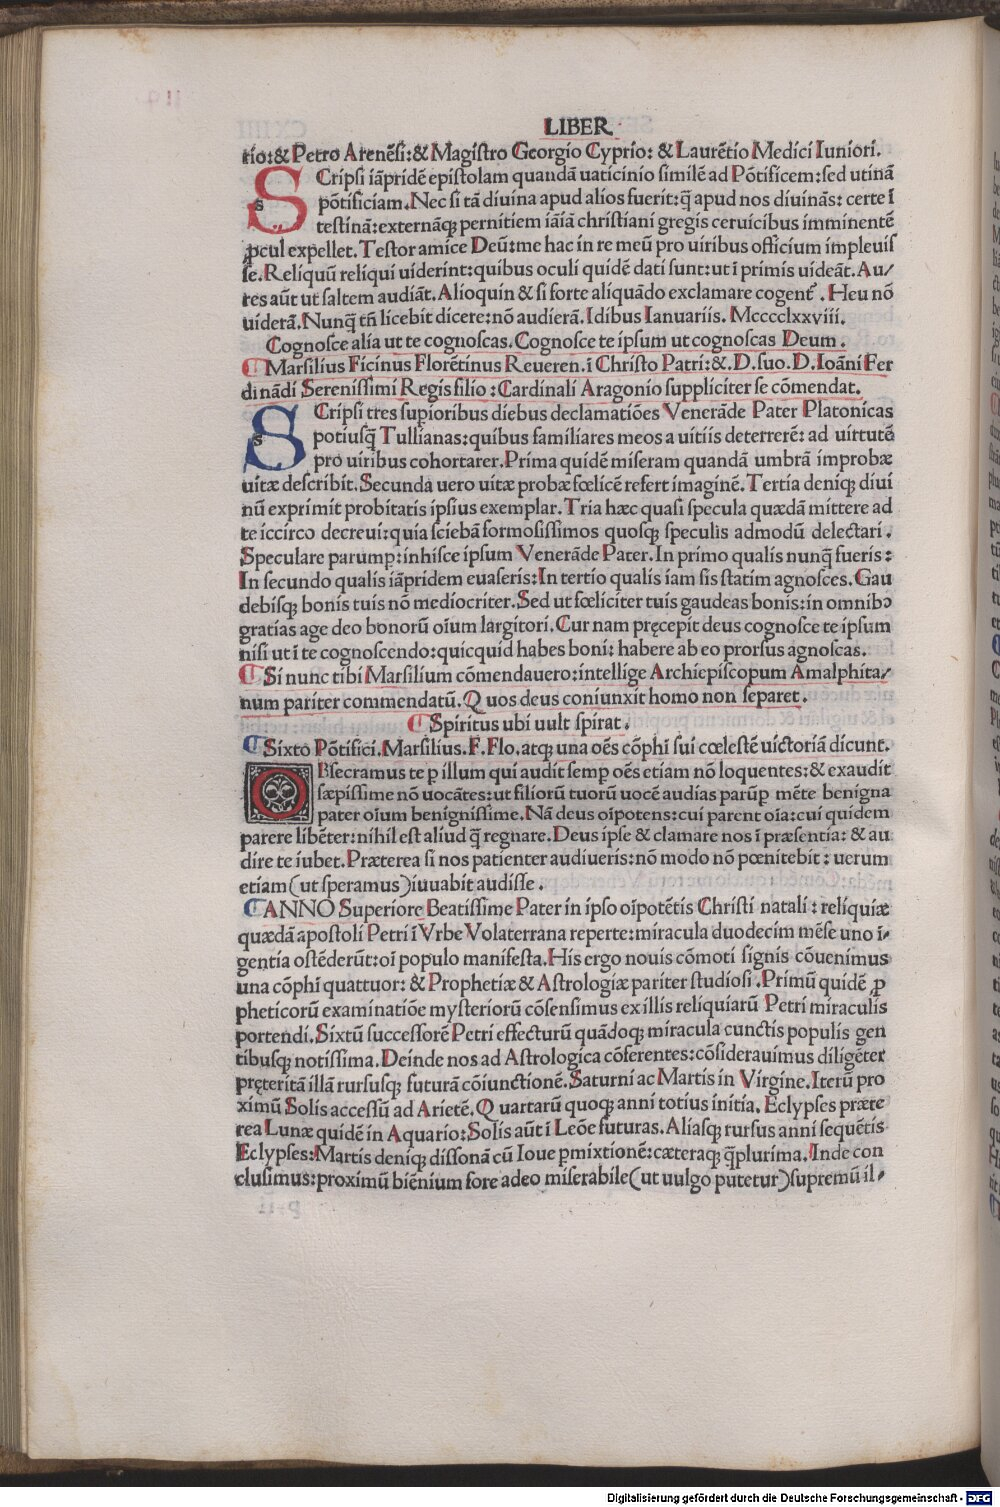 LIBER
rio:& Petro Arenẽsi:& Magistro Georgio Cyprio: & Laurẽtio Medici Iuniori.
SCripsi iãpridẽ epistolam quandã uaticinio similẽ ad Põtificem:sed utinã
põtificiam.Nec si tã diuina apud alios fuerit:q̃ apud nos diuinãs: certe ĩ
testinã:externãq; pernitiem iãiã christiani gregis ceruicibus imminentẽ
ꝓcul expellet. Testor amice Deũ:me hac in re meũ pro uiribus officium impleuis
se.Reliquũ reliqui uiderint:quibus oculi quidẽ dati sunt:ut ĩ primis uideãt.Au/
res aũt ut saltem audiãt.Alioquin & si forte aliquãdo exclamare cogent᷑. Heu nõ
uiderã.Nunq̃ tñ licebit dicere:nõ audierã.Idibus Ianuariis. Mcccclxxviii.
Cognosce alia ut te cognoscas.Cognosce te ipsum ut cognoscas Deum.
¶ Marsilius Ficinus Florẽtinus Reueren.ĩ Christo Patri:&.D.suo.D.Ioãni Fer
dinãdi Serenissimi Regis filio:Cardinali Aragonio suppliciter se cõmendat.
SCripsi tres supioribus diebus declamatiões Venerãde Pater Platonicas
potiusq̃ Tullianas:quibus familiares meos a uitiis deterrerẽ: ad uirtutẽ
pro uiribus cohortarer.Prima quidẽ miseram quandã umbrã improbæ
uitæ describit.Secunda uero uitæ probæ fœlicẽ refert imaginẽ.Tertia deniq; diui
nũ exprimit probitatis ipsius exemplar.Tria hæc quasi specula quædã mittere ad
te iccirco decreui:quia sciebã formosissimos quosq; speculis admodũ delectari.
Speculare parump:inhisce ipsum Venerãde Pater.In primo qualis nunq̃ fueris:
In secundo qualis iãpridem euaseris:In tertio qualis iam sis statim agnosces.Gau
debisq; bonis tuis nõ mediocriter.Sed ut fœliciter tuis gaudeas bonis:in omnibꝰ
gratias age deo bonorũ oĩum largitori.Cur nam pręcepit deus cognosce te ipsum
nisi ut ĩ te cognoscendo:quicquid habes boni: habere ab eo prorsus agnoscas.
¶ Si nunc tibi Marsilium cõmendauero:intellige Archiepiscopum Amalphita/
num pariter commendatũ.Quos deus coniunxit homo non separet.
¶ Spiritus ubi uult spirat.
¶ Sixto Põtifici.Marsilius.F.Flo.atq; una oẽs cõphi sui cœlestẽ uictoriã dicunt.
OBsecramus te p illum qui audit semp oẽs etiam nõ loquentes:& exaudit
sæpissime nõ uocãtes:ut filiorũ tuorũ uocẽ audias parũp mẽte benigna
pater oĩum benignissime.Nã deus oĩpotens:cui parent oĩa:cui quidem
parere libẽter:nihil est aliud q̃ regnare.Deus ipse & clamare nos ĩ præsentia: & au
dire te iubet.Præterea si nos patienter audiueris:nõ modo nõ pœnitebit: uerum
etiam(ut speramus)iuuabit audisse.
¶ ANNO Superiore Beatissime Pater in ipso oĩpotẽtis Christi natali: reliquiæ
quædã apostoli Petri ĩ Vrbe Volaterrana reperte:miracula duodecim mẽse uno ĩ/
gentia ostẽderũt:oĩ populo manifesta.His ergo nouis cõmoti signis cõuenimus
una cõphi quattuor: & Prophetiæ & Astrologiæ pariter studiosi.Primũ quidẽ ꝓ
pheticorũ examinatiõe mysteriorũ cõsensimus ex illis reliquiarũ Petri miraculis
portendi.Sixtũ successorẽ Petri effecturũ quãdoq; miracula cunctis populis gen
tibusq; notissima.Deinde nos ad Astrologica cõferentes:cõsiderauimus diligẽter
pręteritã illã rursusq; futurã cõiunctionẽ.Saturni ac Martis in Virgine.Iterũ pro
ximũ Solis accessũ ad Arietẽ.Quartarũ quoq; anni totius initia. Eclypses præte
rea Lunæ quidẽ in Aquario:Solis aũt ĩ Leõe futuras.Aliasq; rursus anni sequẽtis
Eclypses:Martis deniq; dissonã cũ Ioue pmixtionẽ:cæteraq; q̃plurima.Inde con
clusimus:proximũ biẽnium fore adeo miserabile(ut uulgo putetur)supremũ il/
Digitalisierung gefördert durch die Deutsche Forschungsgemeinschaft - DFG